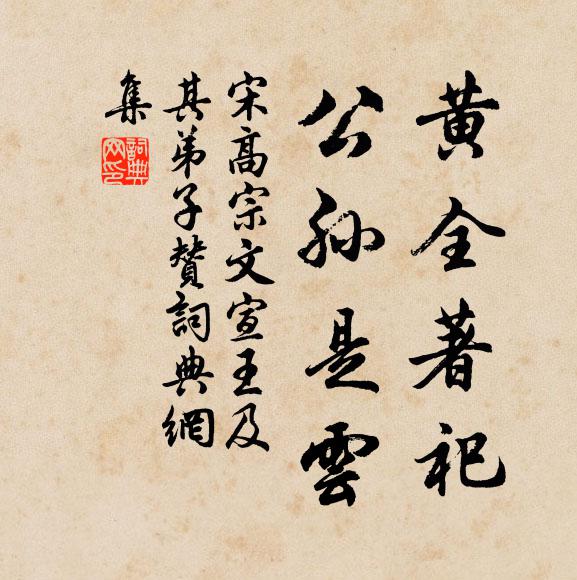 黄全著祀
公孙是雲
宋高宗文宣王及
其弟子赞詞典網
集
詞典網印